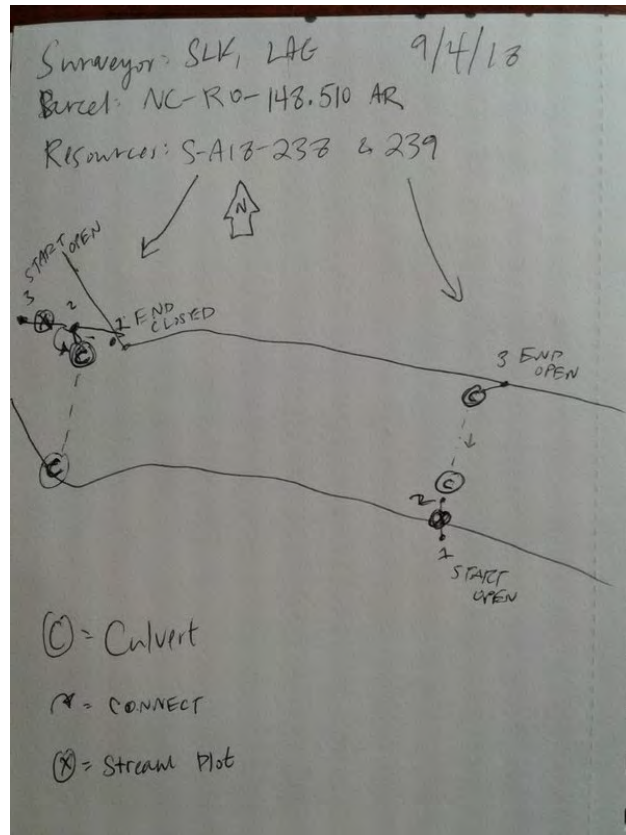 Surveyor: SLK, LAG 9/4/18
Parcel: NC-RO-148.510 AR
Resources: S-A18-238 & 239
N
START OPEN
3
2
1 END CLOSED
C
3 END OPEN
C
C
C
2
1
START OPEN
C = Culvert
= CONNECT
X = Stream Plot